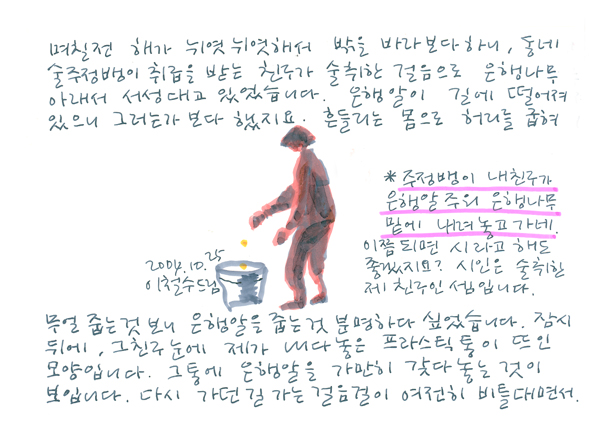 며칠전 해가 뉘엿뉘엿해서 밖을 바라보다하니, 동네
술주정뱅이 취급을 받는 친구가 술취한 걸음으로 은행나무
아래서 서성대고 있었습니다. 은행알이 길에 떨어져
있으니 그러는가 보다 했지요. 흔들리는 몸으로 허리를 굽혀
* 주정뱅이 내친구가
은행알 주워 은행나무
밑에 내려놓고 가네.
이쯤 되면 시라고 해도
좋겠지요? 시인은 술취한
제 친구인 셈입니다.
2004.10.25
이철수드림
무얼 줍는것 보니 은행알을 줍는것 분명하다 싶었습니다. 잠시
뒤에, 그친구눈에 제가 내다놓은 프라스틱통이 뜨인
모양입니다. 그통에 은행알을 가만히 갖다놓는 것이
보입니다. 다시 가던길 가는 걸음걸이 여전히 비틀대면서.